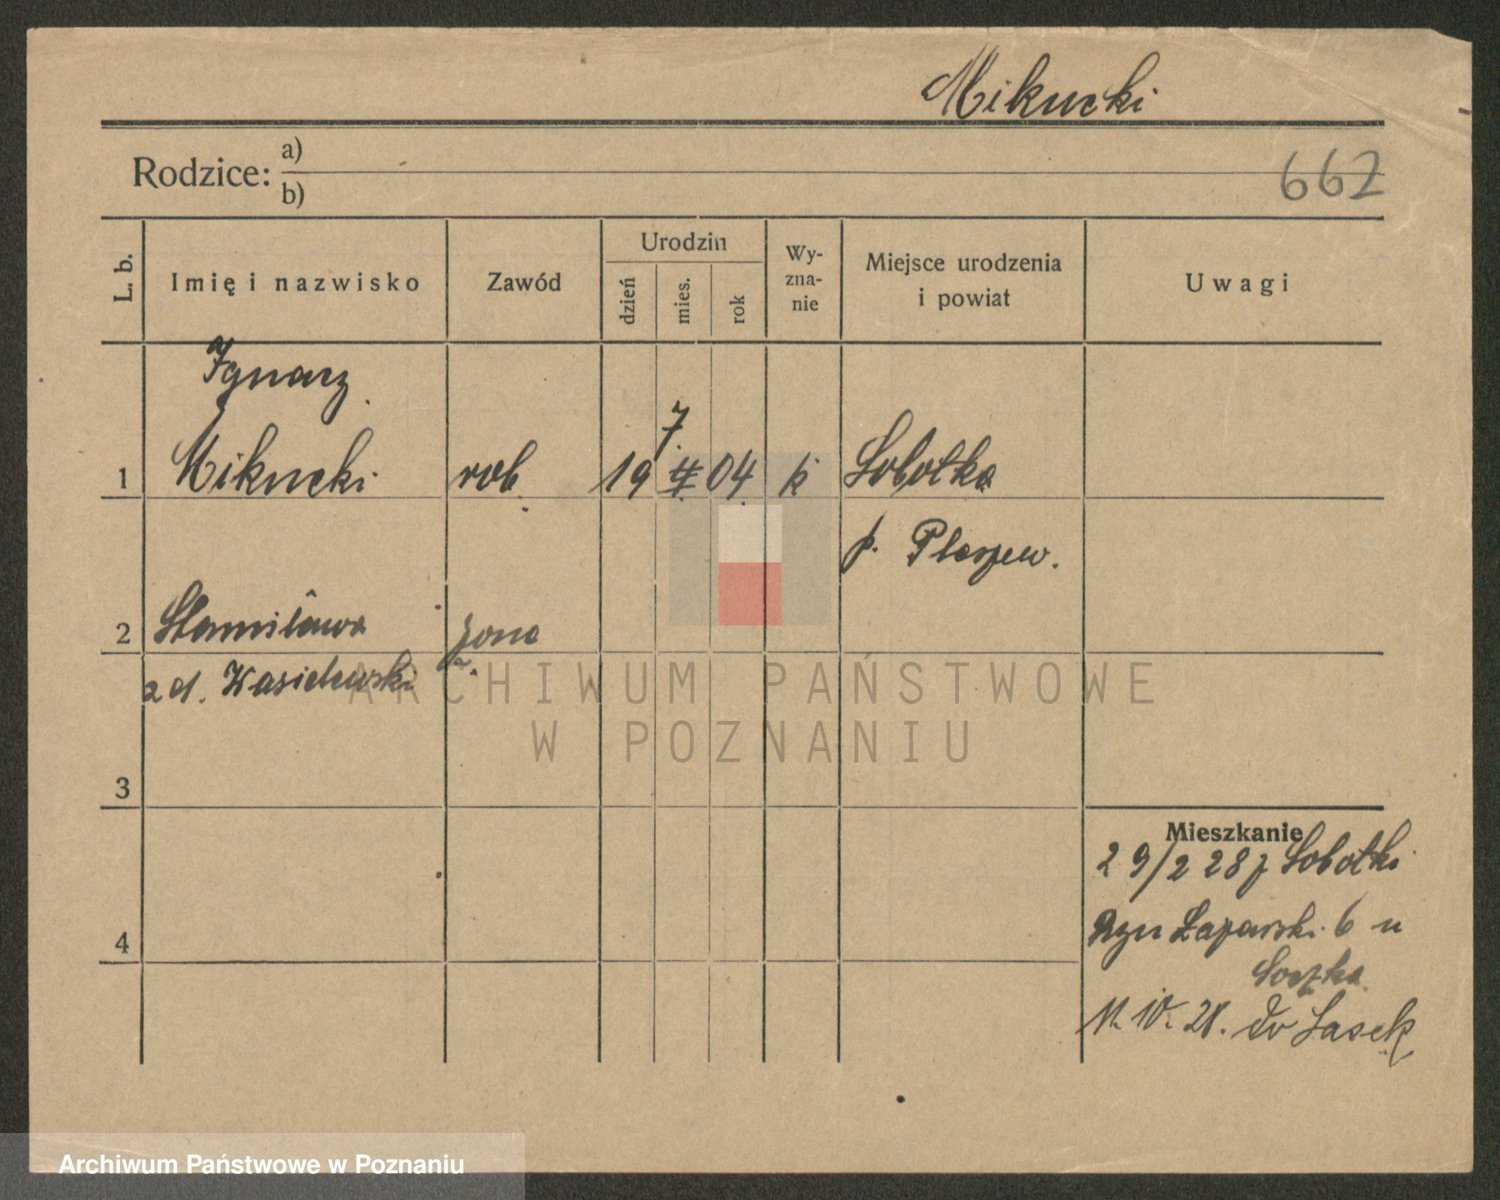 Mikucki
Rodzice: a)
b)
662
L. b.
Imię i nazwisko
Zawód
Urodzin
dzień
mies.
rok
Wy-
zna-
nie
Miejsce urodzenia
i powiat
Uwagi
Ignacz
7
1 Mikucki rob. 19 04 k Sobotka
p. Pleszew.
2 Stanisława żona
z d. Wasielewski
3
Mieszkanie
29/2 28 z Sobotki
4
6 u
11. IV. 28. do Lasek
ARCHIWUM PAŃSTWOWE
W POZNANIU
Archiwum Państwowe w Poznaniu